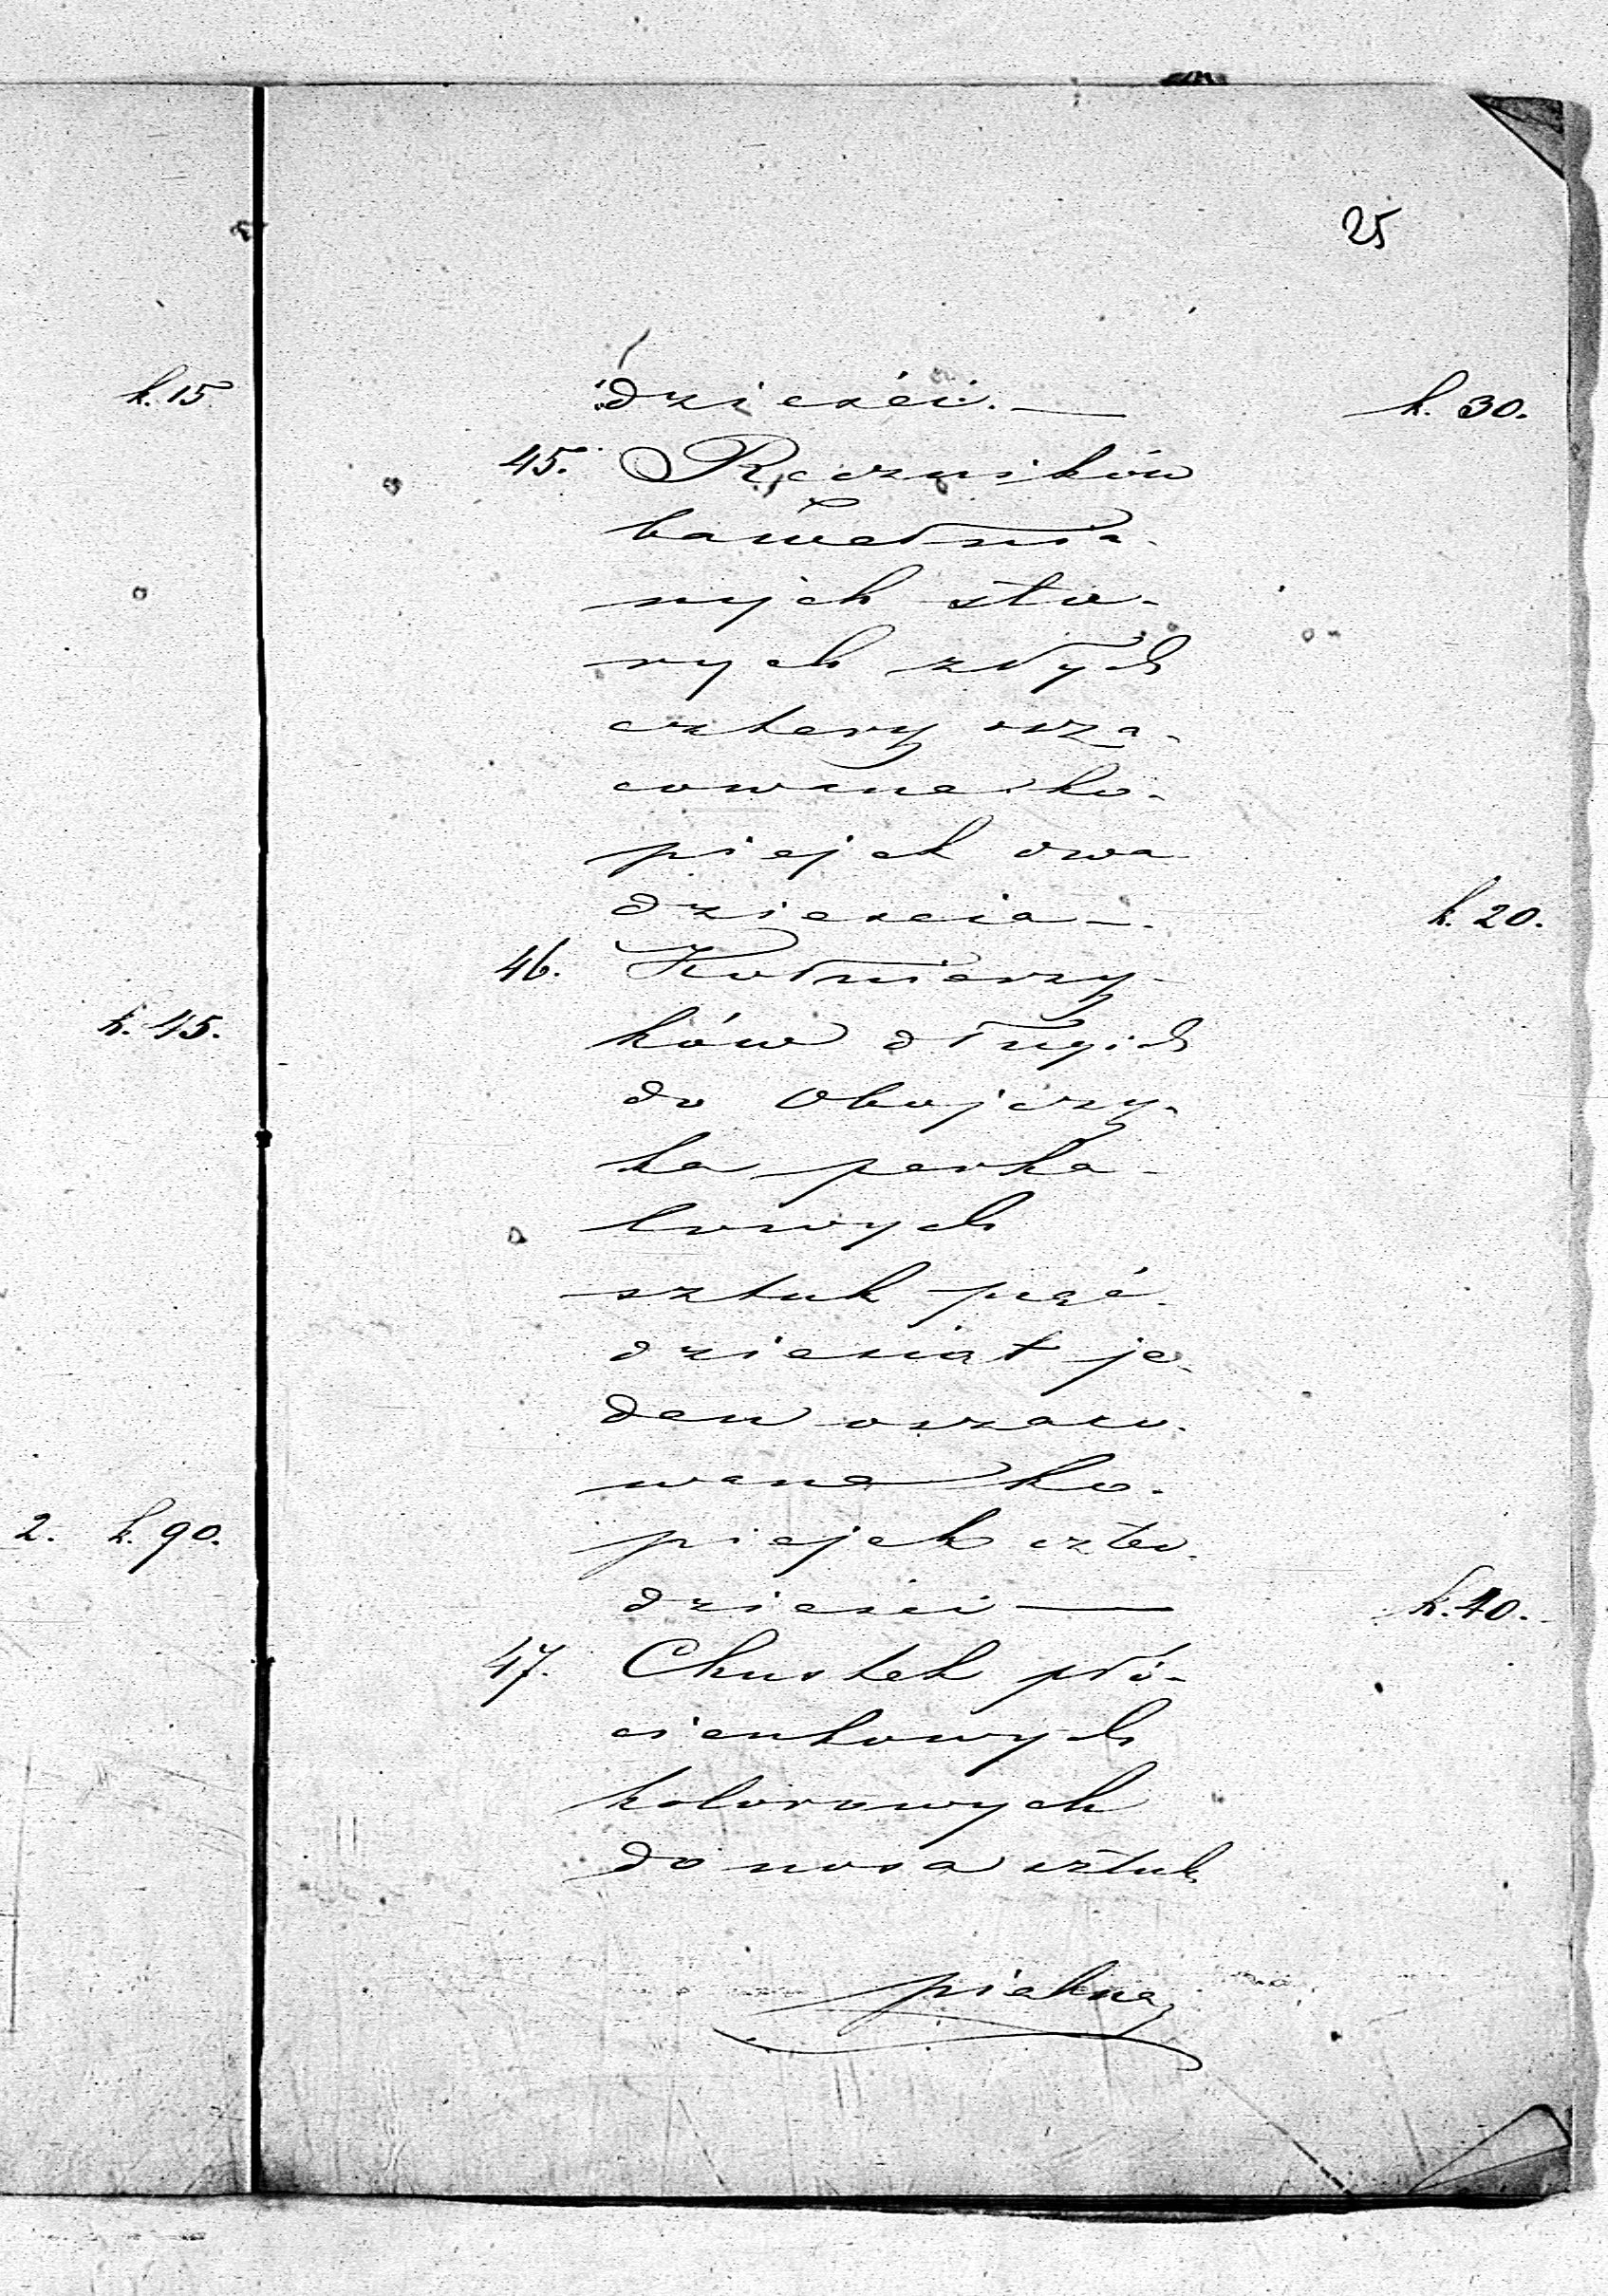 25
k. 15
dzieści. — k. 30.
45. Ręczników
bawełnia-
nych sta-
rych złych
cztery osza-
cowane ko-
piejek dwa
dzieścia —. k. 20.
46. Kołnierzy-
k. 45.
ków długich
do Obojczy-
ka perka-
lowych
sztuk pięć-
dziesiąt je-
den oszaco-
wane ko-
2. k. 90.
piejek czter-
dzieści — k. 40.
47. Chustek płó-
cienkowych
kolorowych
do nosa sztuk